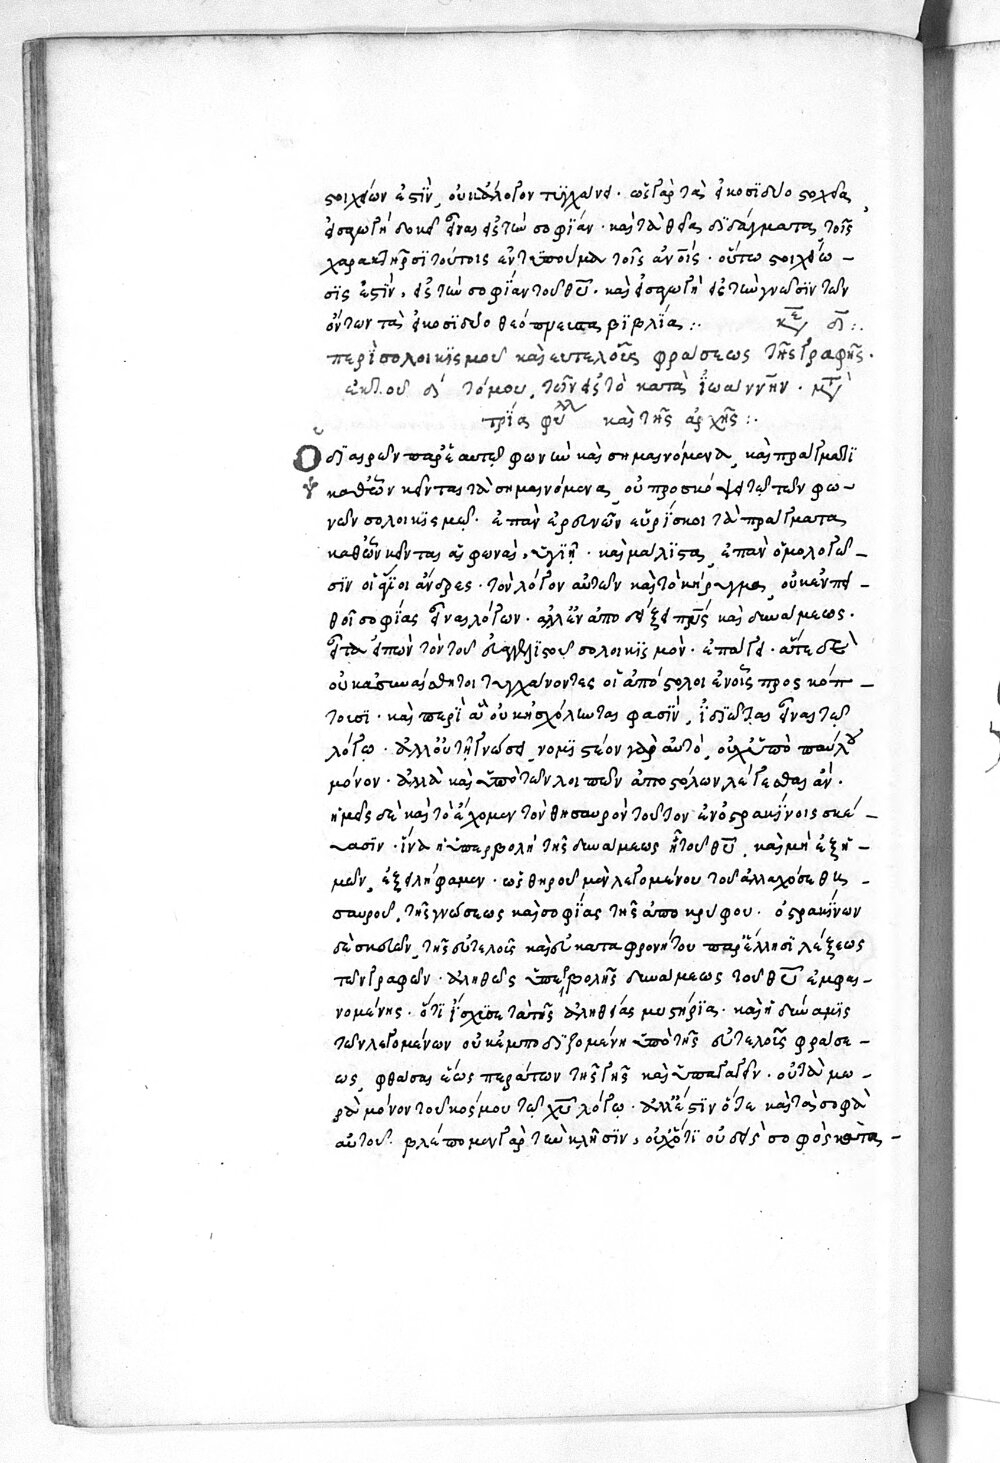 στοιχείων ἐστὶν, οὐκ ἄλογον τυγχάνει· ὡς γὰρ τὰ εἰκοσιδύο στοιχεῖα,
εἰσαγωγὴ δοκεῖ εἶναι εἰς τὴν σοφίαν· καὶ τὰ θεῖα διδάγματα, τοῖς
χαρακτῆρσι τούτοις ἐντυπούμενα τοῖς ἀνοις· οὕτω στοιχείω –
σις ἐστὶν, εἰς τὴν σοφίαν τοῦ θυ· καὶ εἰσαγωγὴ εἰς τὴν γνῶσιν τῶν
ὄντων τὰ εἰκοσιδύο θεόπνευστα βιβλία :· κε δ :·
περὶ σολοικισμοῦ καὶ εὐτελοῦς φράσεως τῆς γραφῆς·
ἐκ τοῦ δ τόμου, τῶν εἰς τὸ κατὰ ἰωάννην·
καὶ τῆς ἀρχῆς :·
Ὁ διαιρῶν παρ' ἑαυτῷ φωνὴν καὶ σημαινόμενα, καὶ πράγματα
καθ' ὧν κεῖνται τὰ σημαινόμενα, οὐ προσκόψει τῷ τῶν φω –
νῶν σολοικισμῷ· ἐπὰν ἐρευνῶν εὑρίσκοι τὰ πράγματα
καθ' ὧν κεῖνται αἱ φωναὶ, ὑγιῆ· καὶ μάλιστα, ἐπὰν ὁμολογῶ –
σιν οἱ ἅγιοι ἄνδρες· τὸν λόγον αὐτῶν καὶ τὸ κήρυγμα, οὐκ ἐν πει –
θοῖ σοφίας εἶναι λόγων· ἀλλ' ἐν ἀποδείξει πνς καὶ δυνάμεως·
εἶτα εἰπὼν τὸν τοῦ εὐαγγελιστοῦ σολοικισμὸν· ἐπάγει· ἅτε δὲ
οὐκ ἀσυναίσθητοι τυγχάνοντες οἱ ἀπόστολοι ἐν οἷς προσκόπ –
τουσι· καὶ περὶ ἃ οὐκ ἠσχόληνται φασὶν, ἰδιῶται εἶναι τῷ
λόγω· ἀλλ' οὐ τῇ γνώσει, νομιστέον γὰρ αὐτὸ, οὐχ' ὑπὸ παύλου
μόνον· ἀλλὰ καὶ ὑπὸ τῶν λοιπῶν ἀποστόλων λέγεσθαι ἄν·
ἡμεῖς δὲ καὶ τὸ ἔχομεν τὸν θησαυρὸν τοῦτον ἐν ὀστρακίνοις σκεύ –
εσιν· ἵνα ἡ ὑπερβολὴ τῆς δυνάμεως ᾖ τοῦ θυ, καὶ μὴ ἐξ ἡ –
μῶν, ἐξειλήφαμεν· ὡς θησαυροῦ μὲν λεγομένου τοῦ ἀλλαχόσε θη –
σαυροῦ, τῆς γνώσεως καὶ σοφίας τῆς ἀποκρύφου· ὀστρακίνων
δὲ σκευῶν, τῆς εὐτελοῦς καὶ εὐκαταφρονήτου παρ' ἕλλησι λέξεως
τῶν γραφῶν· ἀληθῶς ὑπερβολῆς δυνάμεως τοῦ θυ ἐμφαι –
νομένης· ὅτι ἴσχυσε τὰ τῆς ἀληθείας μυστήρια· καὶ ἡ δύναμις
τῶν λεγομένων οὐκ ἐμποδιζομένη ὑπὸ τῆς εὐτελοῦς φράσε –
ως, φθάσαι ἕως περάτων τῆς γῆς καὶ ὑπαγαγεῖν· οὐ τὰ μω –
ρὰ μόνον τοῦ κόσμου τῷ χυ λόγω· ἀλλ' ἔστιν ὅτε καὶ τὰ σοφὰ
αὐτοῦ· βλέπομεν γὰρ τὴν κλῆσιν, οὐχ' ὅτι οὐδεὶς σοφὸς κατὰ –